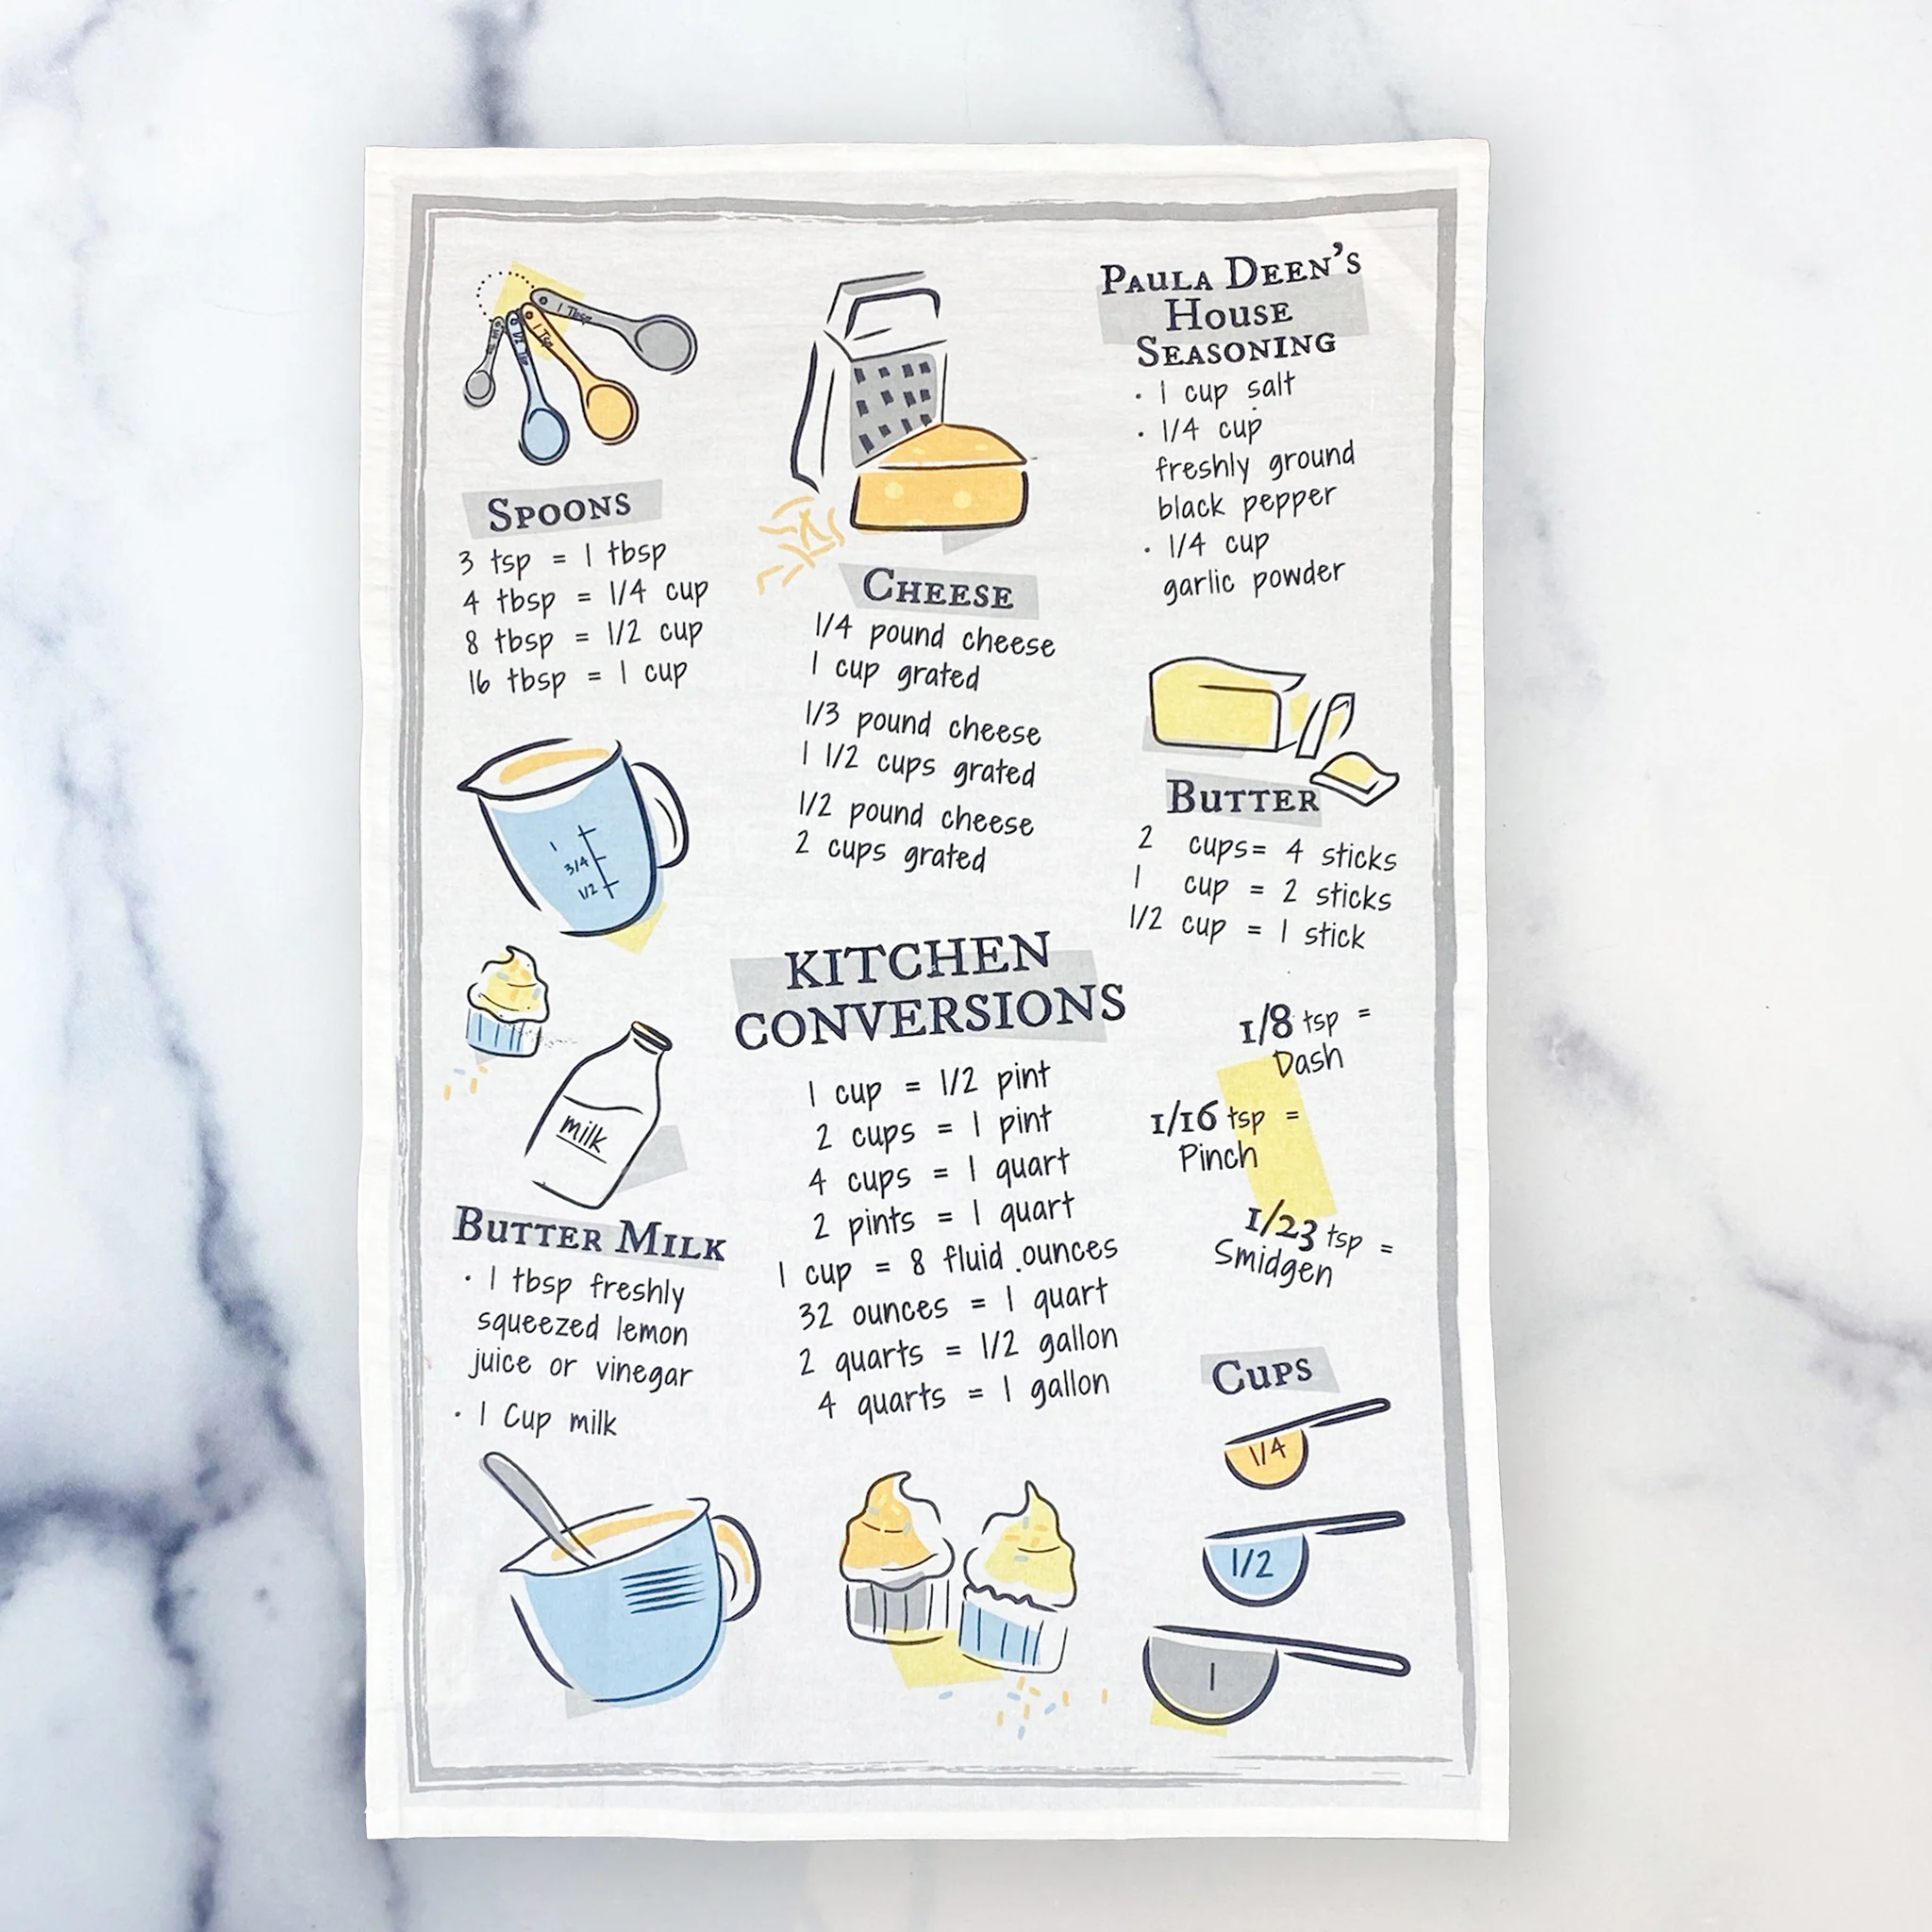 1 Tbsp
1 Tsp
1/2 Tsp
SPOONS
3 tsp = 1 tbsp
4 tbsp = 1/4 cup
8 tbsp = 1/2 cup
16 tbsp = 1 cup
1
3/4
1/2
milk
BUTTER MILK
· 1 tbsp freshly
squeezed lemon
juice or vinegar
· 1 Cup milk
CHEESE
1/4 pound cheese
1 cup grated
1/3 pound cheese
1 1/2 cups grated
1/2 pound cheese
2 cups grated
KITCHEN
CONVERSIONS
1 cup = 1/2 pint
2 cups = 1 pint
4 cups = 1 quart
2 pints = 1 quart
1 cup = 8 fluid ounces
32 ounces = 1 quart
2 quarts = 1/2 gallon
4 quarts = 1 gallon
PAULA DEEN'S
HOUSE
SEASONING
· 1 cup salt
· 1/4 cup
freshly ground
black pepper
· 1/4 cup
garlic powder
BUTTER
2 cups= 4 sticks
1 cup = 2 sticks
1/2 cup = 1 stick
1/8 tsp =
Dash
1/16 tsp =
Pinch
1/23 tsp =
Smidgen
CUPS
1/4
1/2
1